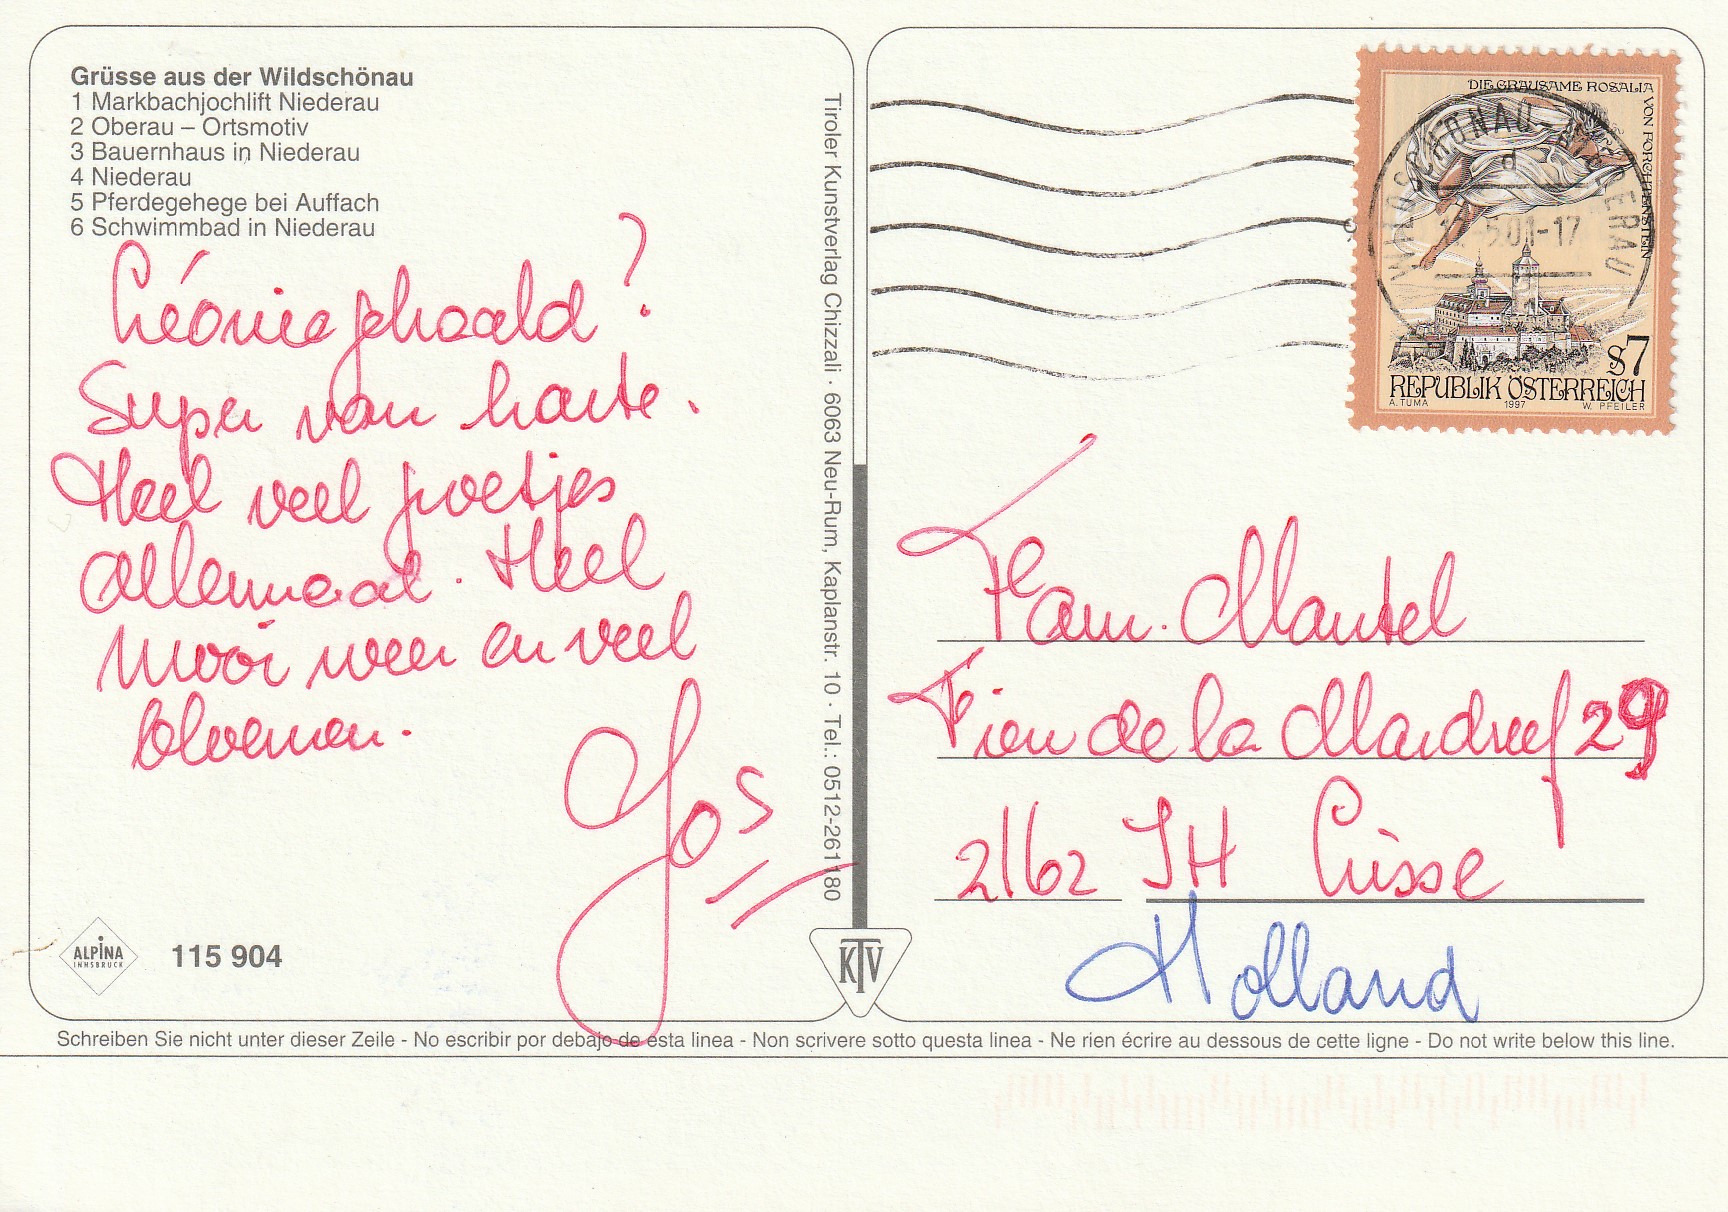 Grüsse aus der Wildschönau
1 Markbachjochlift Niederau
2 Oberau – Ortsmotiv
3 Bauernhaus in Niederau
4 Niederau
5 Pferdegehege bei Auffach
6 Schwimmbad in Niederau
Léonie gehaald?
Super van harte.
Heel veel poetjes
allemaal. Heel
mooi weer en veel
bloemen.
Jos
ALPINA
INNSBRUCK
115 904
Tiroler Kunstverlag Chizzali · 6063 Neu-Rum, Kaplanstr. 10 · Tel.: 0512-261180
KTV
DIE GRAUSAME ROSALIA VON FORCHTENSTEIN
WILDSCHÖNAU-NIEDERAU
d
5.01-17
S7
REPUBLIK ÖSTERREICH
A. TUMA 1997 W. PFEILER
Fam. Mantel
Fien de la Mardreef 29
2162 JH Lisse
Holland
Schreiben Sie nicht unter dieser Zeile - No escribir por debajo de esta linea - Non scrivere sotto questa linea - Ne rien écrire au dessous de cette ligne - Do not write below this line.